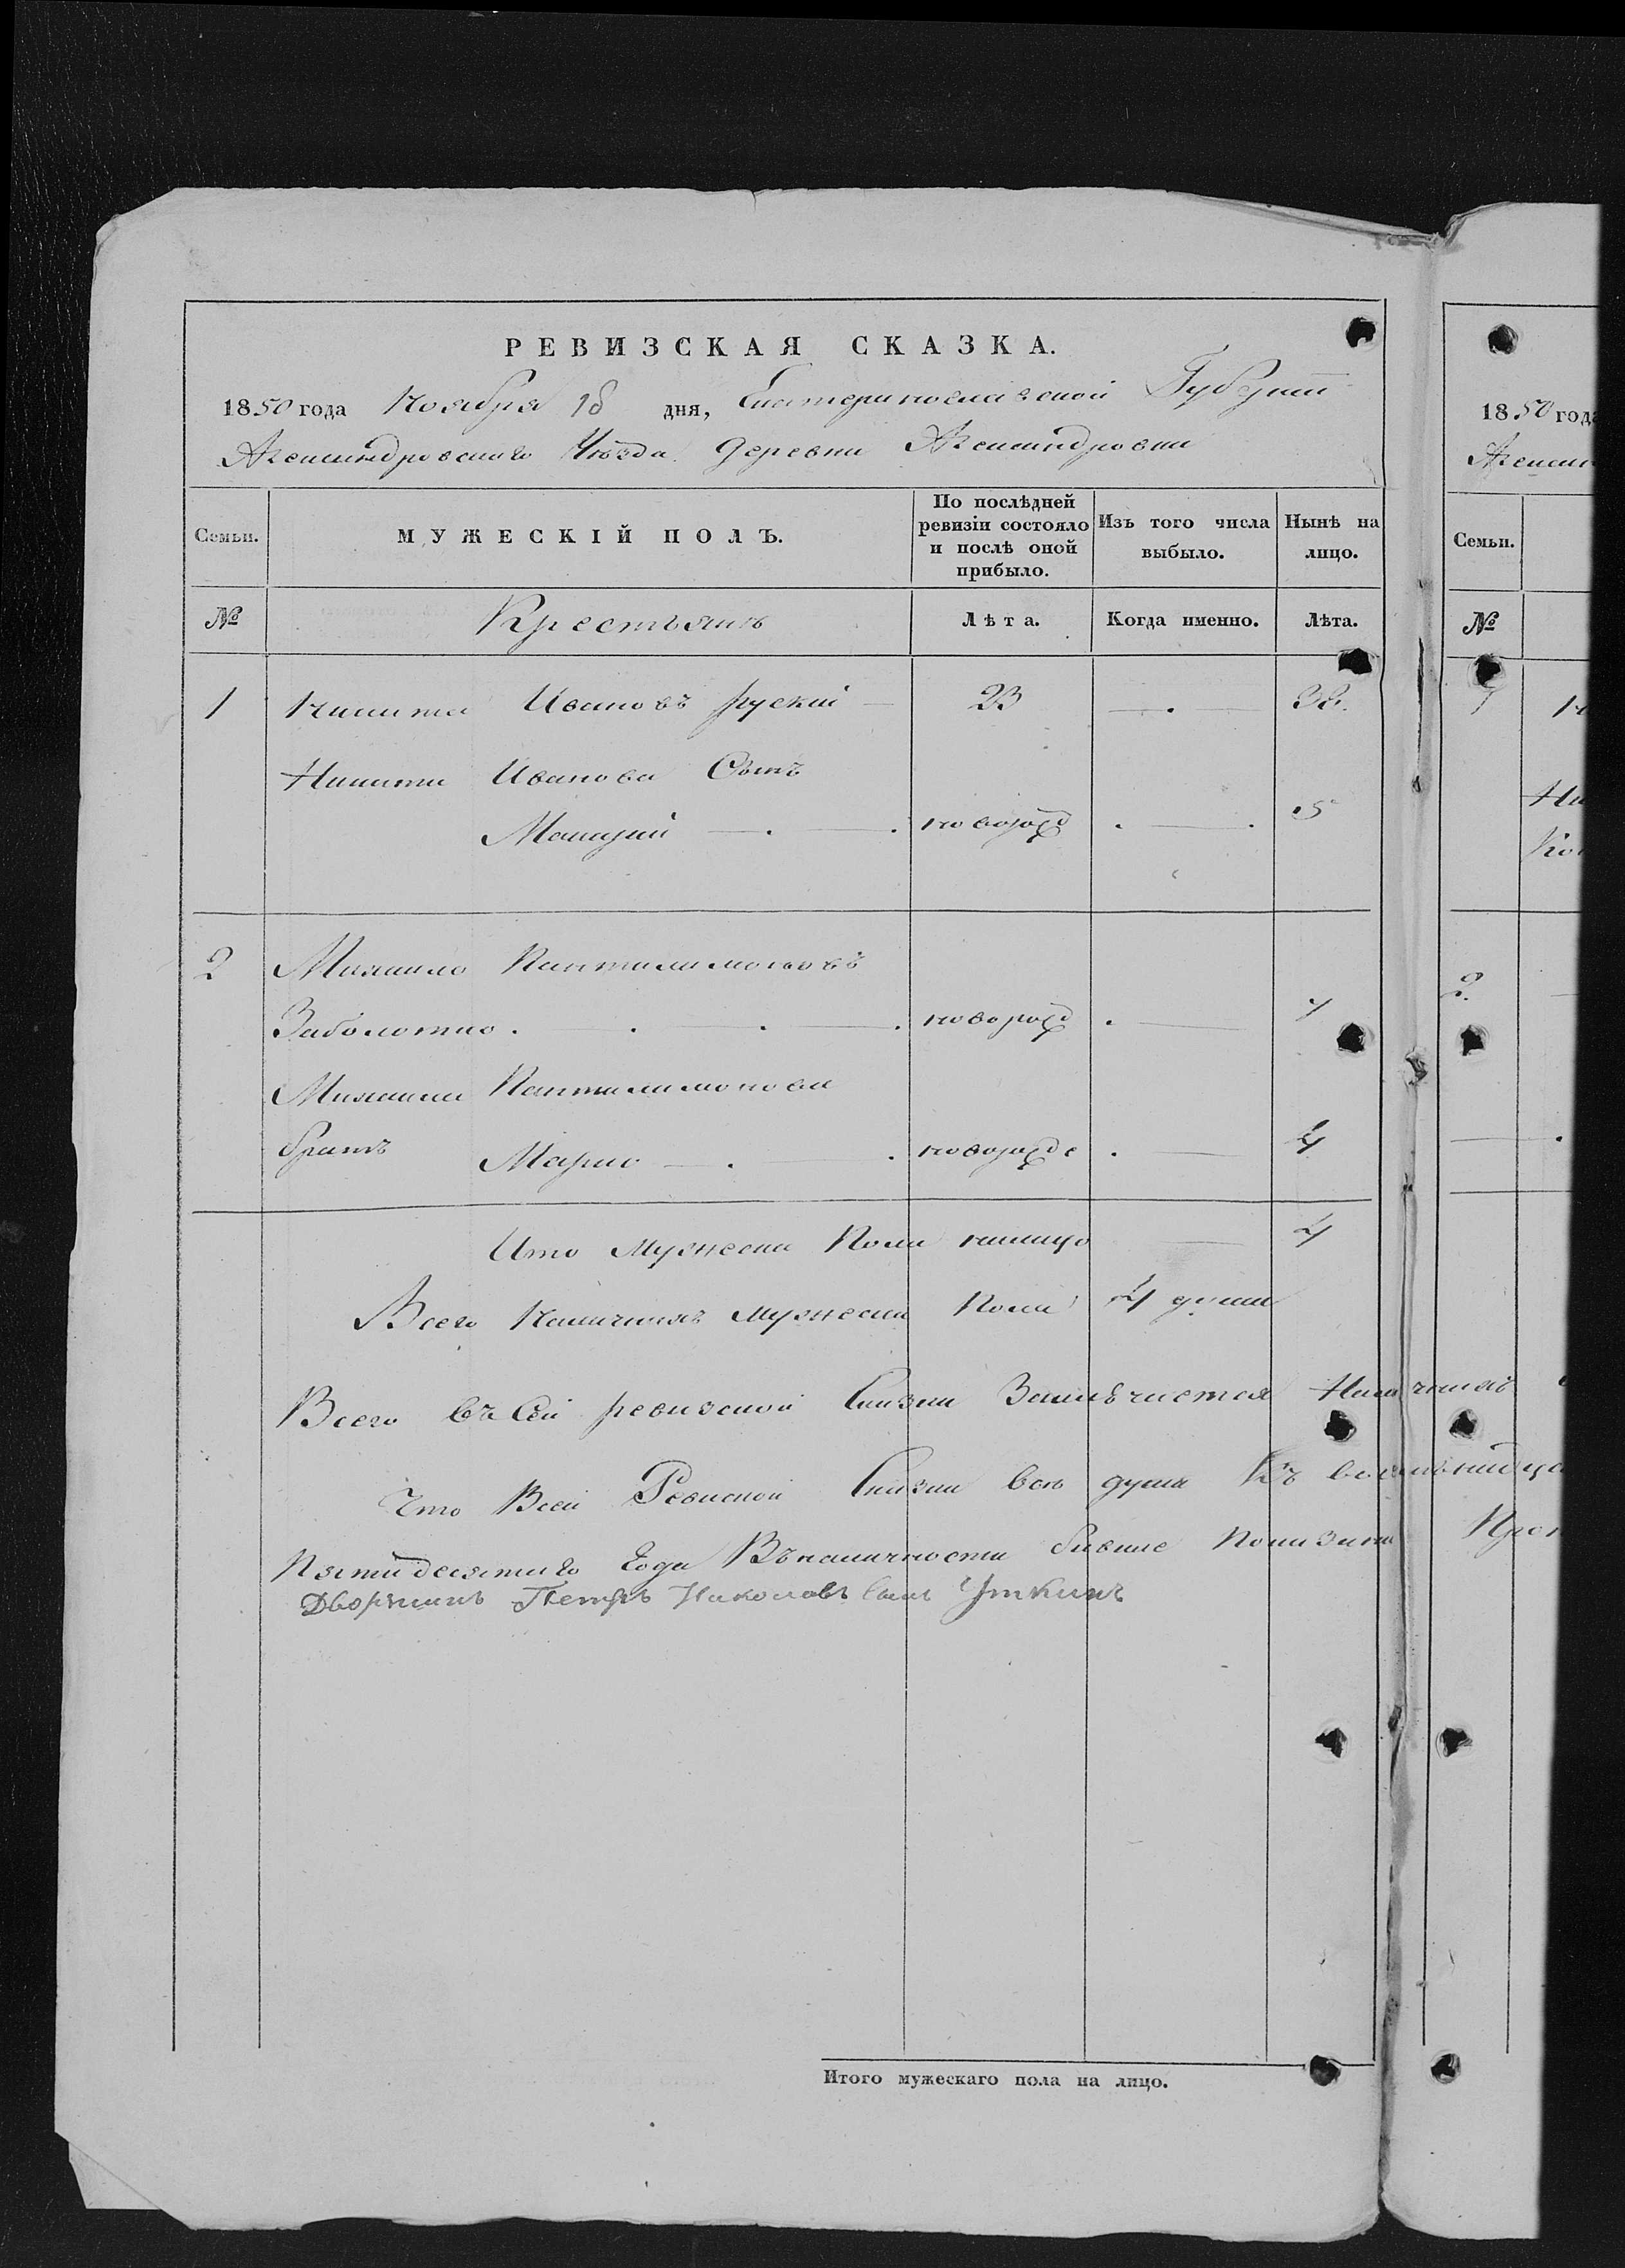 РЕВИЗСКАЯ СКАЗКА.
1850 года Ноября 18 дня, Екатеринославской Губерніи
Александровскаго Уѣзда деревни Александровки
Семьи. МУЖЕСКІЙ ПОЛЪ. По послѣдней ревизіи состояло и послѣ оной прибыло. Изъ того числа выбыло. Нынѣ на лицо.
№ Крестьянъ Лѣта. Когда именно. Лѣта.
1 Никита Ивановъ рускій 23 —.— 32.
Никиты Иванова Сынъ
новорожд 5
2 Михайло Пантилимоновъ
Заболотно новорожд
Михайла Пантилимонова
братъ Марко новорожде 4
Ито мужеска Пола налицо 4
Всего Наличныхъ мужеска Пола 4 души
Всего въ Сей ревизской Сказки Заключается Наличныхъ
Что Всей Ревиской Сказки всѣ душа Къ
Пятидесятаго Года Въналичности бывшие Показаны
Дворянинъ Петръ Николаевъ Сынъ Уткинъ
Итого мужескаго пола на лицо.
1850 года
Александ
Семьи.
№
1
2.